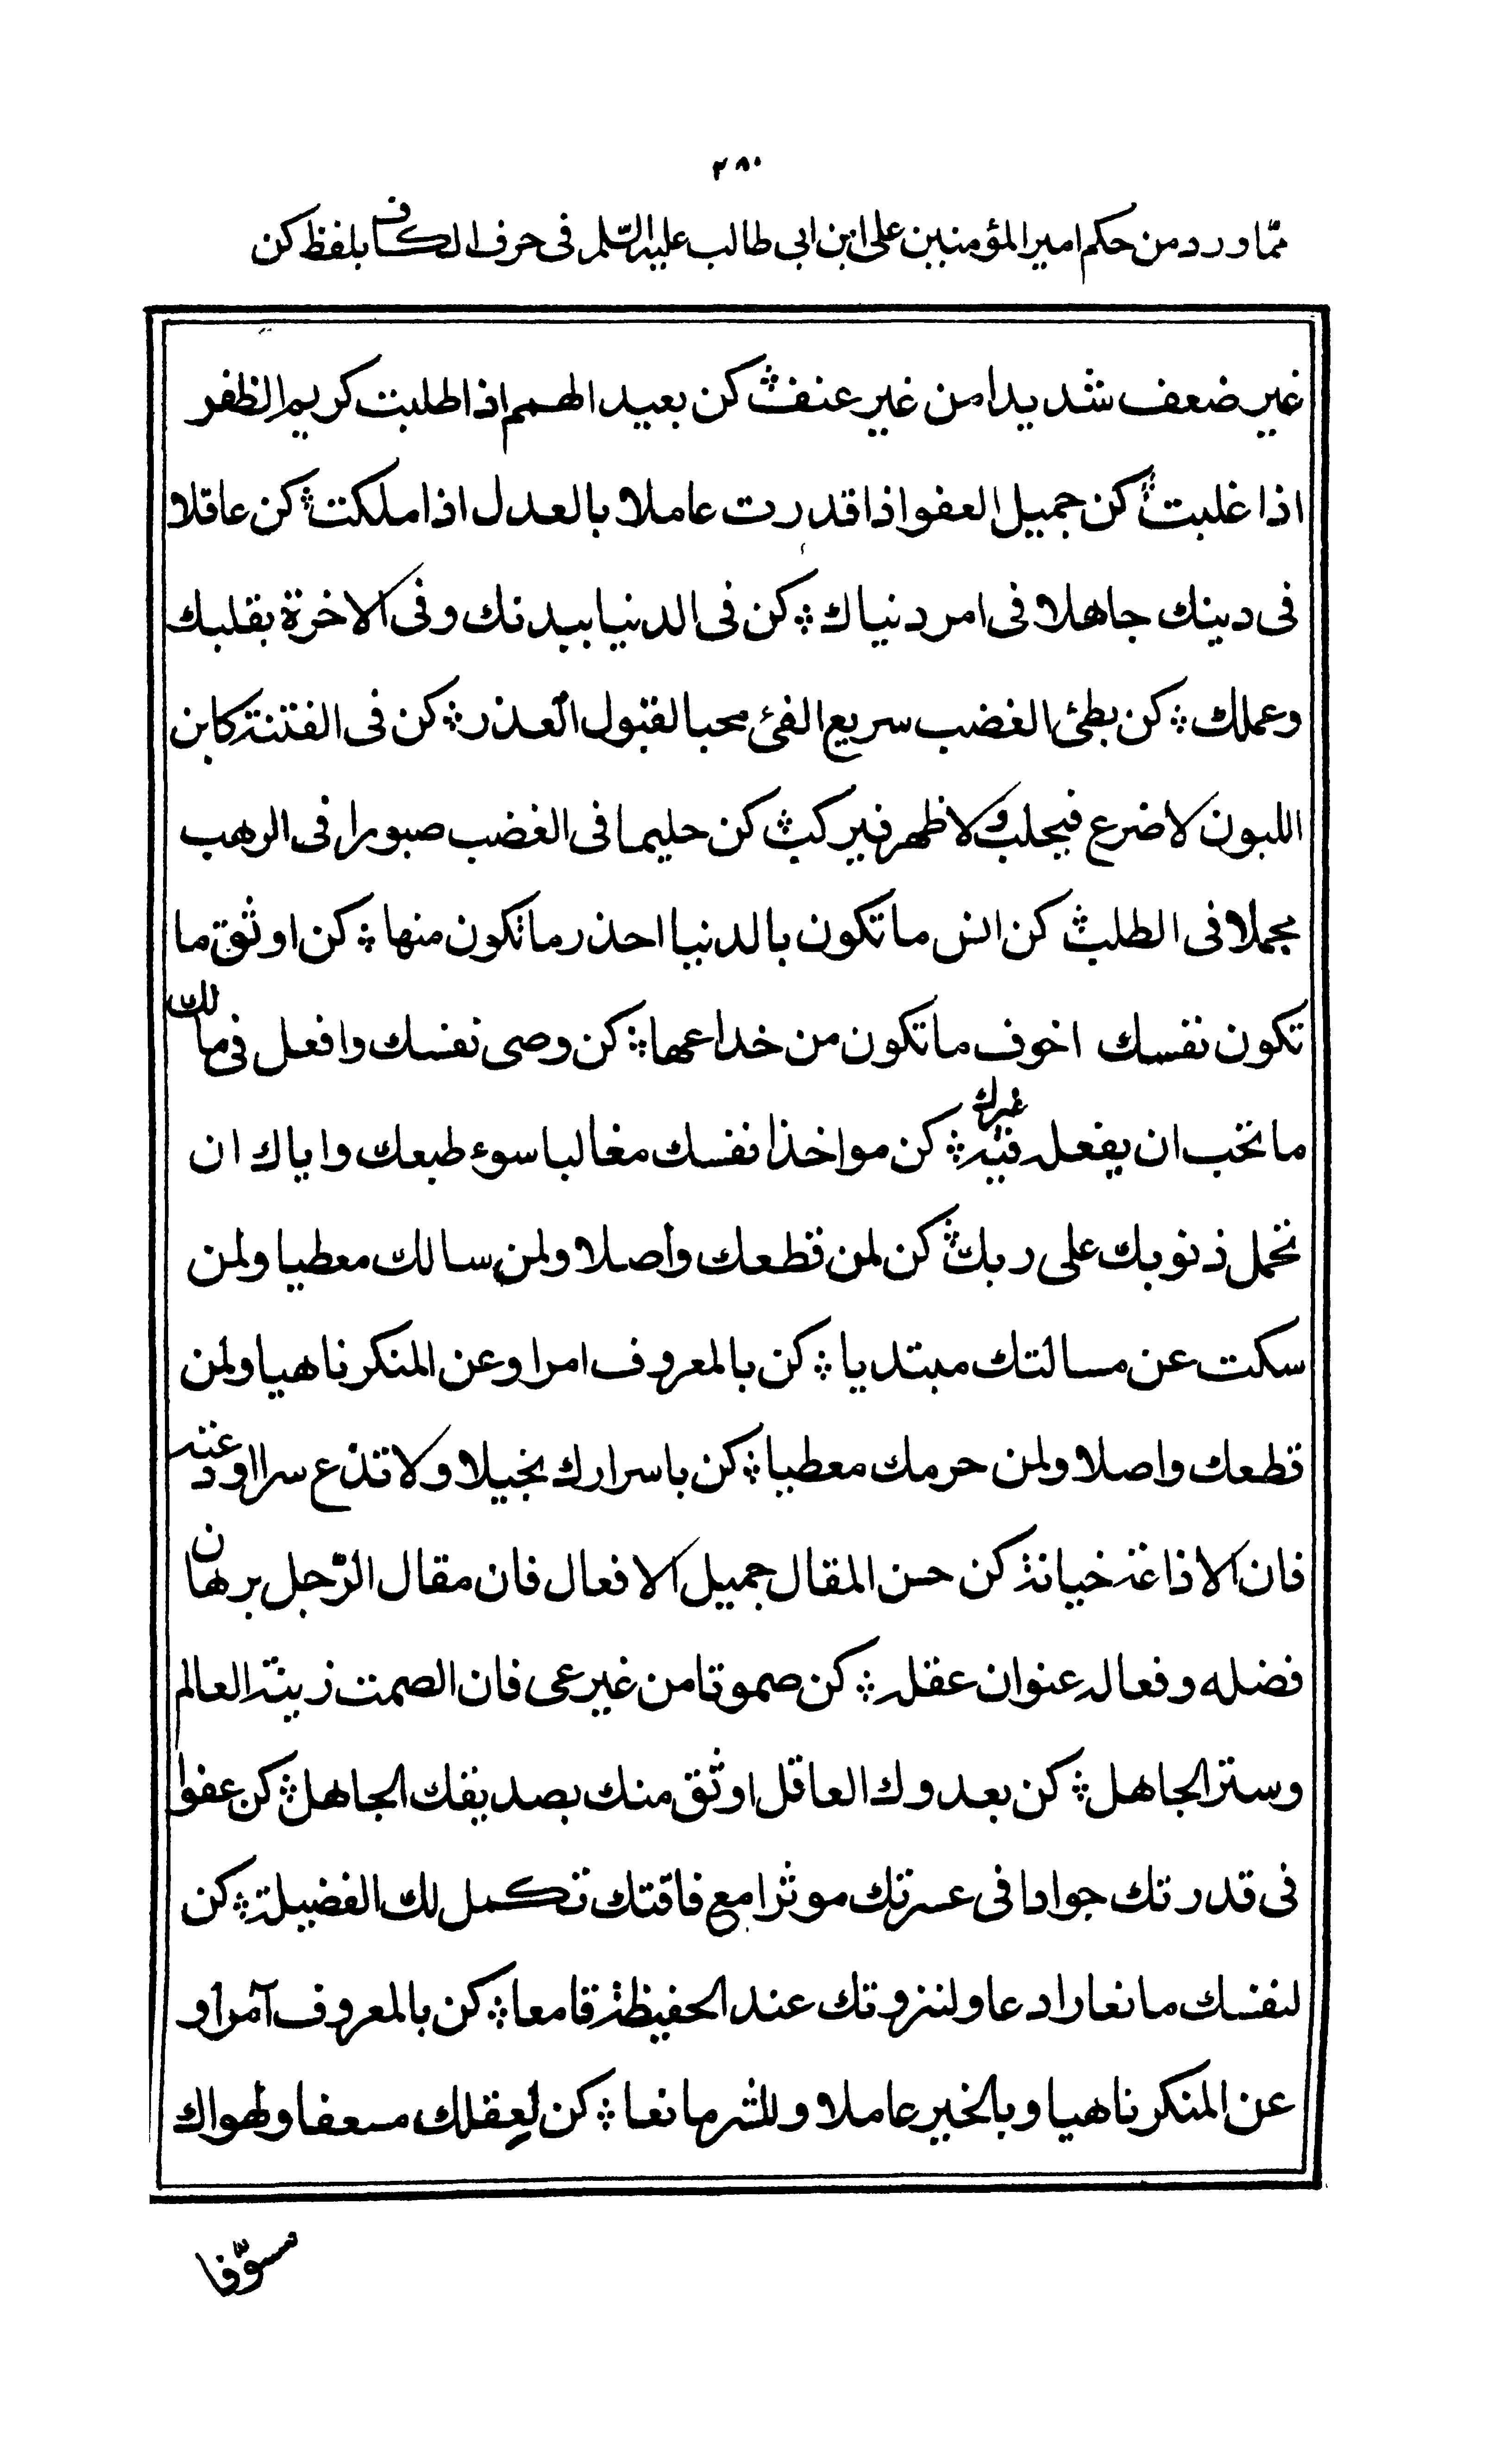 ٢٨٠
ممّا ورد من حكم امير المؤمنين على ابن ابى طالب عليه السّلم فى حرف الكاف بلفظ كن
غير ضعف شديدا من غير عنف ؞ كن بعيد الهمم اذا طلبت كريم الظفر
اذا غلبت ؞ كن جميل العفو اذا قدرت عاملا بالعدل اذا ملكت ؞ كن عاقلا
فى دينك جاهلا فى امر دنياك ؞ كن فى الدنيا ببدنك وفى الاخرة بقلبك
وعملك ؞ كن بطئ الغضب سريع الفئ محبا لقبول العذر ؞ كن فى الفتنة كابن
اللبون لا ضرع فيحلب ولا ظهر فيركب ؞ كن حليما فى الغضب صبورا فى الرهب
مجملا فى الطلب ؞ كن انس ما تكون بالدنيا احذر ما تكون منها ؞ كن اوثق ما
تكون نفسك اخوف ما تكون من خداعها ؞ كن وصى نفسك وافعل فى مالك
ما تحب ان يفعله فيه غيرك ؞ كن مواخذا نفسك مغالبا سوء طبعك واياك ان
تحمل ذنوبك على ربك ؞ كن لمن قطعك واصلا ولمن سالك معطيا ولمن
سكت عن مسالتك مبتديا ؞ كن بالمعروف امرا وعن المنكر ناهيا ولمن
قطعك واصلا ولمن حرمك معطيا ؞ كن باسرارك بخيلا ولا تذع سرا اودعته
فان الاذاعة خيانة كن حسن المقال جميل الافعال فان مقال الرّجل برهان
فضله وفعاله عنوان عقله ؞ كن صموتا من غير عى فان الصمت زينة العالم
وستر الجاهل ؞ كن بعدوك العاقل اوثق منك بصديقك الجاهل ؞ كن عفوا
فى قدرتك جوادا فى عسرتك موثرا مع فاقتك تكمل لك الفضيلة ؞ كن
لنفسك مانعا رادعا ولنزوتك عند الحفيظة قامعا ؞ كن بالمعروف آمرا و
عن المنكر ناهيا وبالخير عاملا وللشر مانعا ؞ كن لعقلك مسعفا ولهواك
مسوّفا